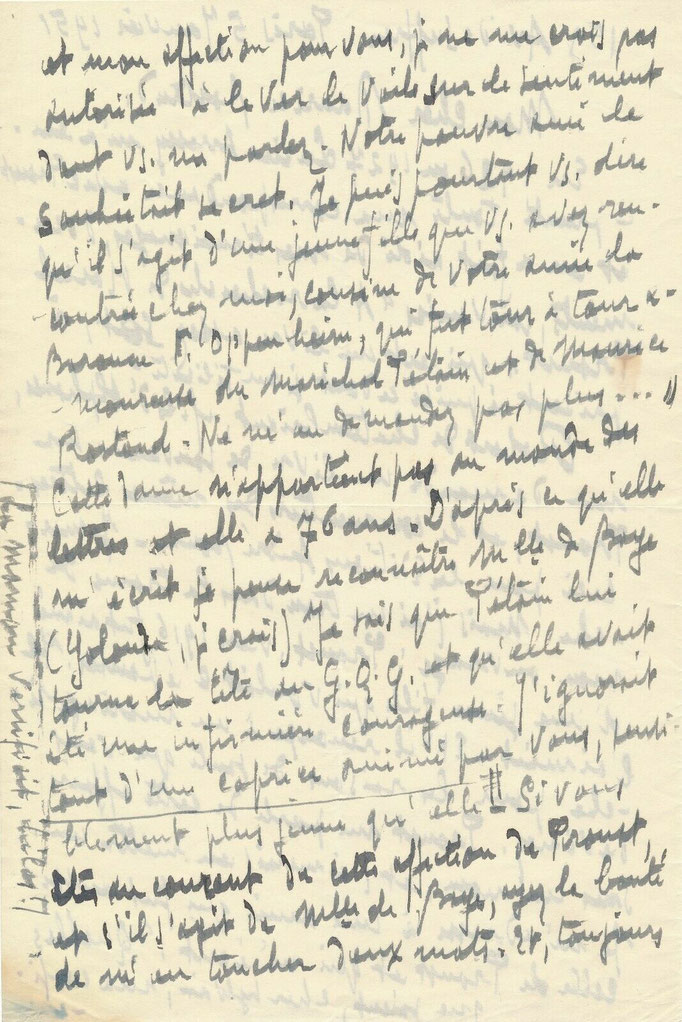 et mon affection pour vous, je ne me crois pas
autorisée à lever le voile sur le sentiment
dont vs. me parlez. Notre pauvre ami le
souhaitait secret. Je puis pourtant vs. dire
qu'il s'agit d'une jeune fille que vs. avez ren-
-contrée chez moi, cousine de votre amie la
Baronne F. Oppenheim, qui fut tour à tour a-
-moureuse du Maréchal Pétain et de Maurice
Rostand - Ne m'en demandez pas plus.... "
Cette dame n'appartient pas au monde des
lettres et elle a 76 ans. D'après ce qu'elle
m'écrit je pense reconnaître Mlle de Baye
(Yolande, je crois) Je sais que Pétain lui
tourna la tête au G.Q.G. et qu'elle avait
été une infirmière courageuse. J'ignorais
tout d'un caprice animé par vous, sensi-
blement plus jeune qu'elle !! Si vous
êtes au courant de cette affection de Proust,
et s'il s'agit de Mlle de Baye, ayez la bonté
de m'en toucher deux mots. Et, toujours
(La maman versifiait, hélas !)